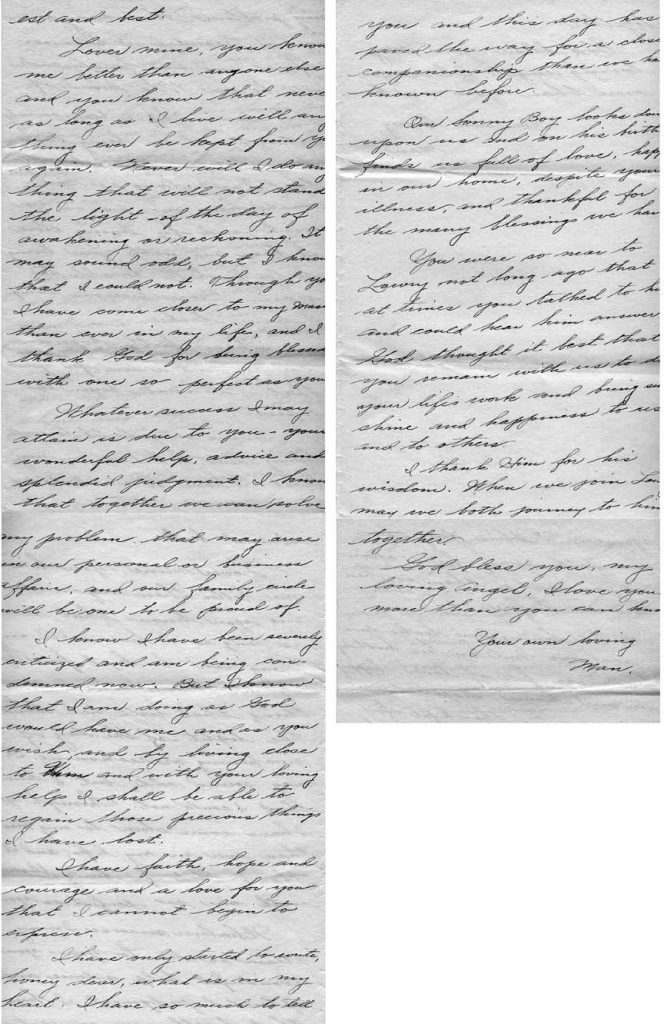 est and best.
Lover mine, you know
me better than anyone else
and you know that never
as long as I live will any
thing ever be kept from you
again. Never will I do any
thing that will not stand
the light of the day of
awakening or reckoning. It
may sound odd, but I know
that I could not. Through you
I have come closer to my
than ever in my life, and I
thank God for being blessed
with one so perfect as you
Whatever success I may
attain is due to you - your
wonderful help, advice and
splendid judgment. I know
that together we can solve
my problem that may arise
in our personal or business
affairs, and our family circle
will be one to be proud of.
I know I have been severely
criticized and am being con-
demned now. But I know
that I am doing as God
would have me and as you
wish, and by living close
to Him and with your loving
help I shall be able to
regain those precious things
I have lost.
I have faith, hope and
courage and a love for you
that I cannot begin to
express.
I have only started to write,
honey dear, what is in my
heart. I have so much to tell
you and this day has
paved the way for a close
companionship than we ha
known before.
Our Sonny Boy looks down
upon us and on his birth
finds us full of love, happ
in our home, despite your
illness, and thankful for
the many blessings we hav
You were so near to
Lowry not long ago that
at times you talked to hi
and could hear him answer
God thought it best that
you remain with us to do
your life's work and bring su
shine and happiness to us
and to others
I thank Him for his
wisdom. When we join Low
may we both journey to him
together.
God bless you, my
loving angel, I love you
more than you can kno
Your own loving
Man.